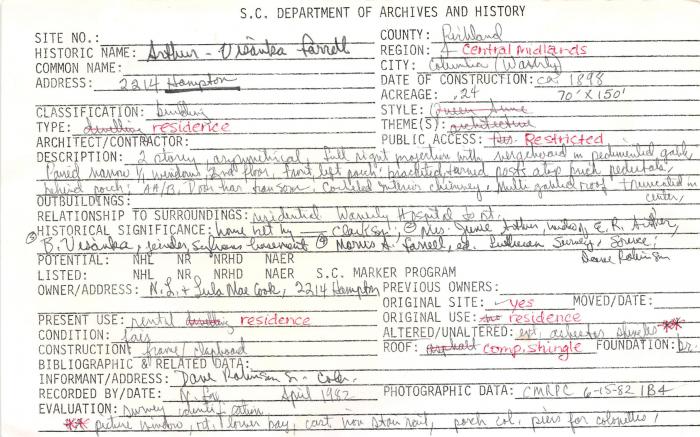 S.C. DEPARTMENT OF ARCHIVES AND HISTORY
SITE NO.: COUNTY: Richland
HISTORIC NAME: Arthur - Visanka Farrell REGION: 4 Central midlands
COMMON NAME: CITY: Columbia (Waverly)
ADDRESS: 2214 Hampton DATE OF CONSTRUCTION: ca. 1898
ACREAGE: .24 70' X 150'
CLASSIFICATION: building STYLE: Queen Anne
TYPE: dwelling residence THEME(S): architecture
ARCHITECT/CONTRACTOR: PUBLIC ACCESS: Restricted
DESCRIPTION: 2 story, asymmetrical, full right projection with in pedimented gable,
narrow 1/1 windows 2nd floor, front left porch; bracketed turned posts atop brick pedestals,
behind porch; Door has transom; Corbeled interior chimney, multi gabled roof truncated in
OUTBUILDINGS: center,
RELATIONSHIP TO SURROUNDINGS: residential Waverly Hospital to
HISTORICAL SIGNIFICANCE: home Clarkson; Mrs. Arthur, widow E. R. Arthur,
B. Visanka, Morris A. Farrell, Lutheran Survey, Source;
POTENTIAL: NHL NR NRHD NAER Dave Robinson
LISTED: NHL NR NRHD NAER S.C. MARKER PROGRAM
OWNER/ADDRESS: N.L. + Lula Mae Cook, 2214 Hampton PREVIOUS OWNERS:
ORIGINAL SITE: yes MOVED/DATE:
PRESENT USE: rental dwelling residence ORIGINAL USE: residence
CONDITION: fair ALTERED/UNALTERED: ext. asbestos shingles **
CONSTRUCTION: frame/clapboard ROOF: asphalt comp. shingle FOUNDATION: br.
BIBLIOGRAPHIC & RELATED DATA:
INFORMANT/ADDRESS: Dave Robinson
RECORDED BY/DATE: April 1982 PHOTOGRAPHIC DATA: CMRPC 6-15-82 1B4
EVALUATION: survey identification
** picture window, rt. lower bay, cast iron stair rail, porch col. piers for colonettes,